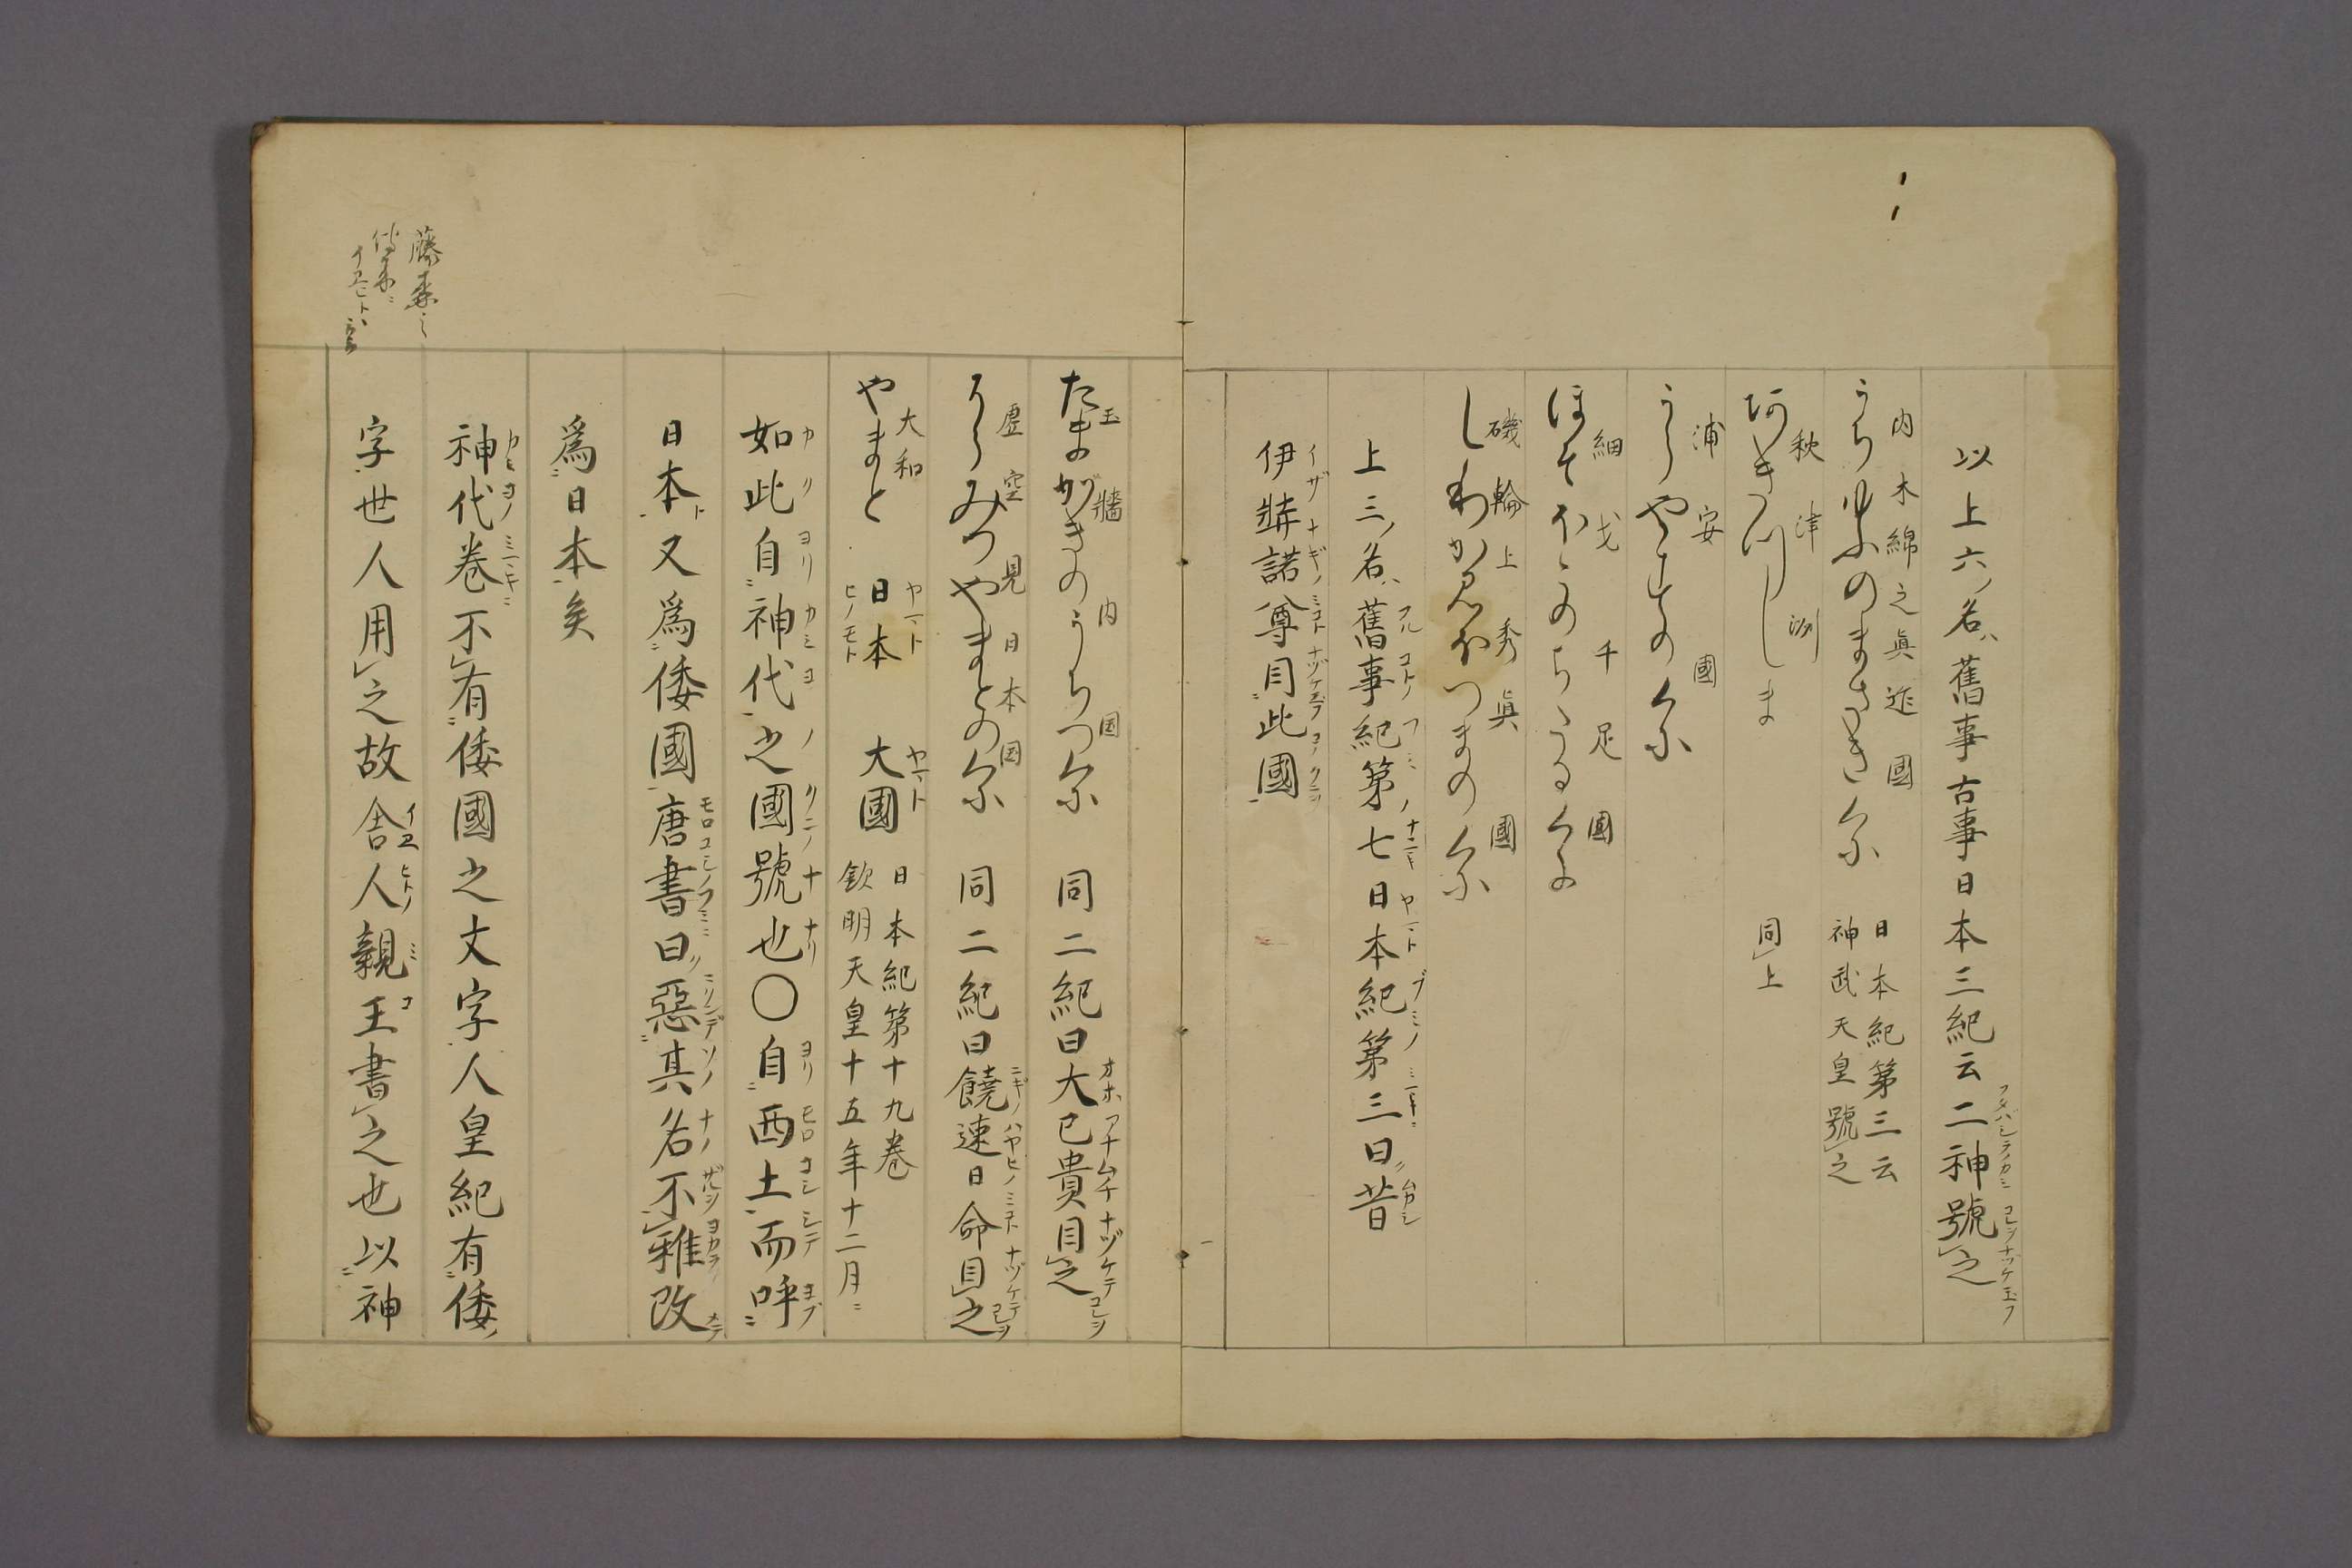 以上六ノ名ハ舊事古事日本三紀云二神號之
うちゆふのまさきくに
内木綿之眞迮國
日本紀第三云
神武天皇號之
あきつしま
秋津洲
同上
うらやすのくに
浦安國
ほそほこのちたるくに
細戈千足國
しわかみほつまのくに
磯輪上秀眞國
上三ノ名ハ舊事紀第七日本紀第三曰昔
伊弉諾尊目此國
たまがきのうちつくに 同二紀曰大已貴目之
玉牆内国
そらみつやまとのくに 同二紀曰饒速日命目之
虚空見日本国
やまと 日本 大國
大和
日本紀第十九巻
欽明天皇十五年十二月ニ
如此自神代之國號也〇自西土而呼
日本又爲倭國唐書曰惡其名不雅改
爲日本矣
神代巻不有倭國之文字人皇紀有倭ノ
字世人用之故舎人親王書之也以神
藤森之